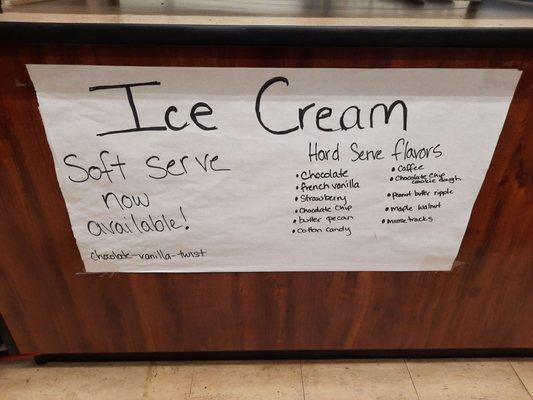 Ice Cream
Soft serve
now
available!
chocolate-vanilla-twist
Hard Serve flavors
• Chocolate
• french vanilla
• Strawberry
• Chocolate Chip
• butter pecan
• Cotton candy
• Coffee
• Chocolate Chip
cookie dough
• Peanut butter ripple
• Maple Walnut
• Moosetracks